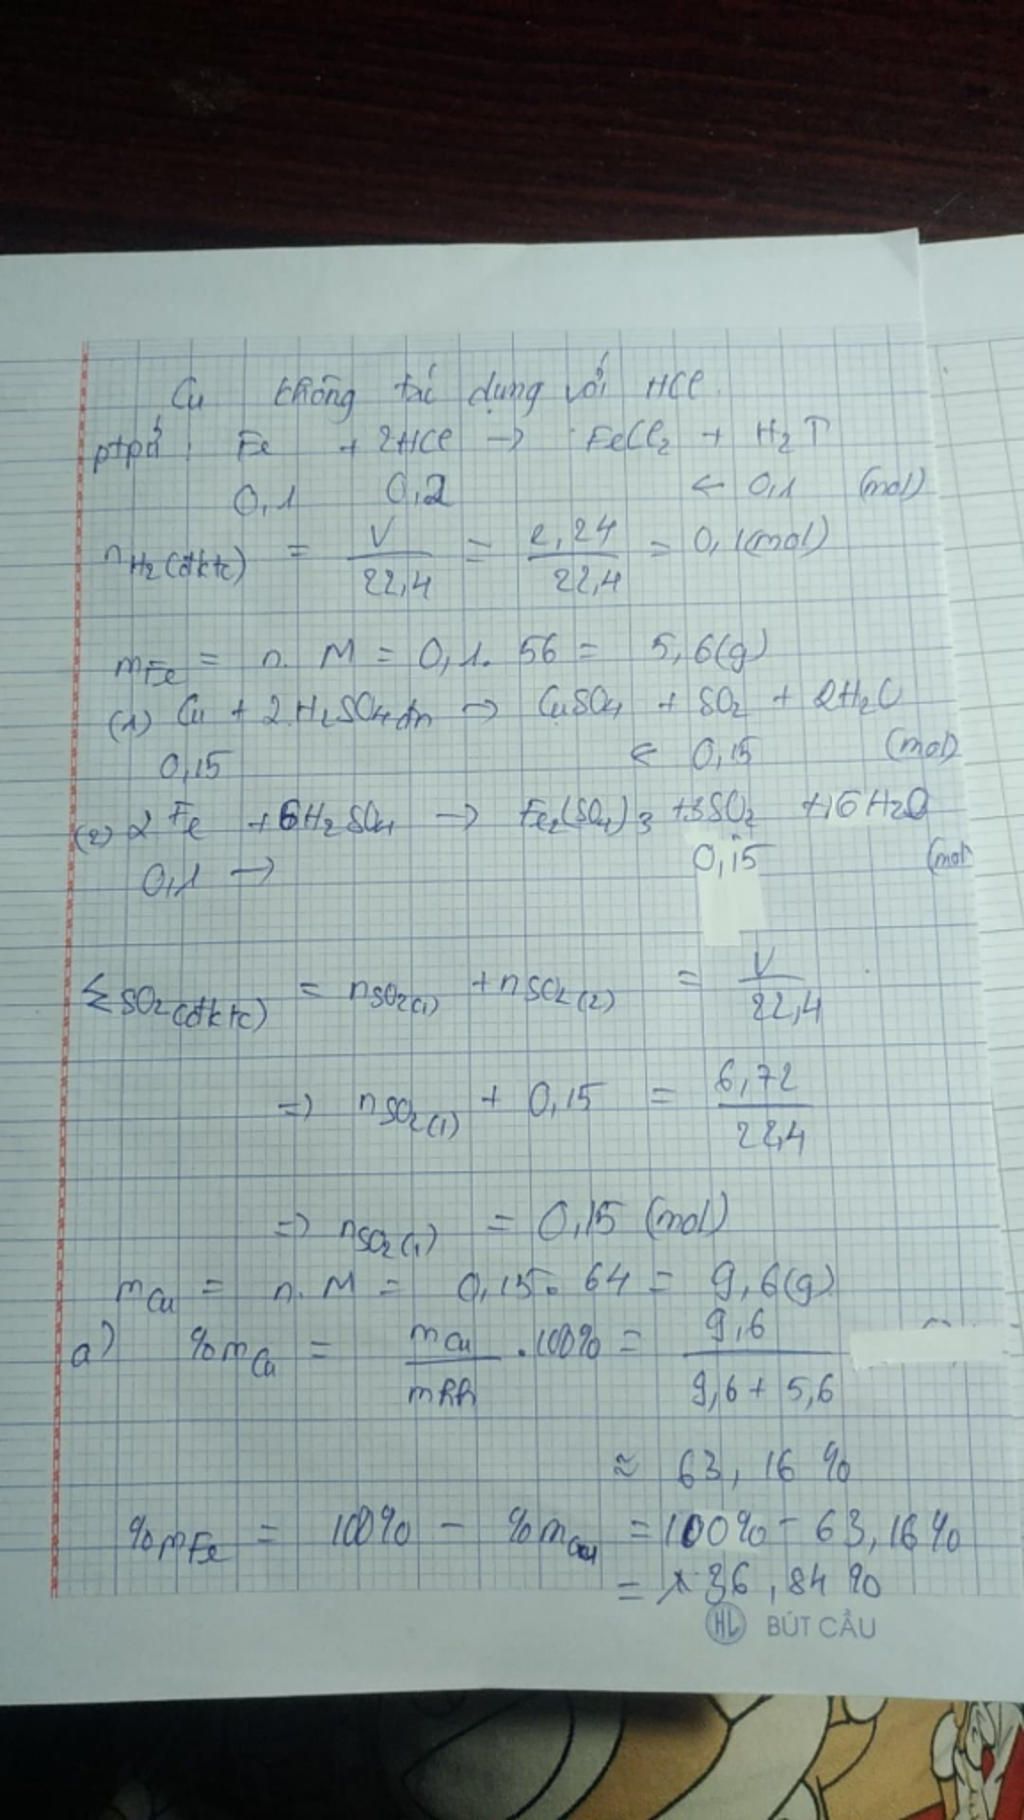 Cu không tác dụng với HCl.
ptpứ: Fe + 2HCl → FeCl2 + H2↑
0,1 0,2 ← 0,1 (mol)
nH2(đktc) = V/22,4 = 2,24/22,4 = 0,1(mol)
mFe = n. M = 0,1. 56 = 5,6(g)
(1) Cu + 2H2SO4 đn → CuSO4 + SO2 + 2H2O
0,15 ← 0,15 (mol)
(2) 2 Fe + 6H2SO4 → Fe2(SO4)3 + 3SO2 + 6H2O
0,1 → 0,15 (mol
ΣSO2(đktc) = nSO2(1) + nSO2(2) = V/22,4
=> nSO2(1) + 0,15 = 6,72/22,4
=> nSO2(1) = 0,15 (mol)
mCu = n. M = 0,15. 64 = 9,6(g)
a) %mCu = mCu/mhh .100% = 9,6/9,6 + 5,6
≈ 63,16 %
%mFe = 100% - %mCu = 100% - 63,16%
= 36,84 %
HL BÚT CẦU